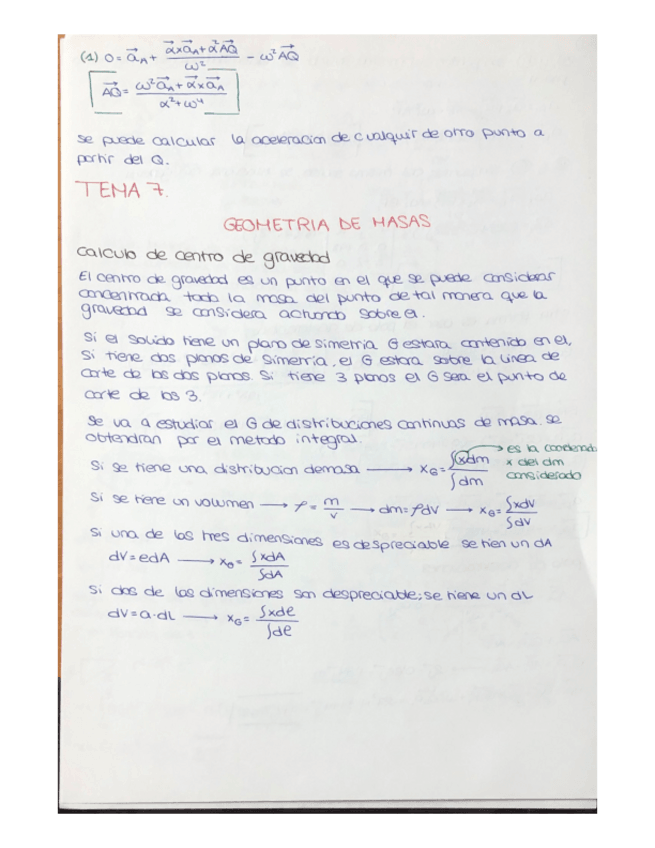 (1) 0 = a⃗_A + (α⃗×a⃗_A + α²AQ⃗)/ω² − ω²AQ⃗
AQ⃗ = (ω²a⃗_A + α⃗×a⃗_A)/(α²+ω⁴)
se puede calcular la aceleracion de cualquir de otro punto a
partir del Q.
TEMA 7.
GEOMETRIA DE MASAS
Calculo de centro de gravedad
El centro de gravedad es un punto en el que se puede considerar
concentrada toda la masa del punto de tal manera que la
gravedad se considera actuando sobre el.
Si el solido tiene un plano de simetria G estara contenido en el,
si tiene dos planos de simetria, el G estara sobre la linea de
corte de los dos planos. Si tiene 3 planos el G sera el punto de
corte de los 3.
Se va a estudiar el G de distribuciones continuas de masa. se
obtendran por el metodo integral.
Si se tiene una distribucion de masa → x_G = ∫xdm/∫dm → es la coordenada
x del dm
considerado
Si se tiene un volumen → ρ = m/v → dm = ρdv → x_G = ∫xdV/∫dV
Si una de las tres dimensiones es despreciable se tien un dA
dV = edA → x_G = ∫xdA/∫dA
Si dos de las dimensiones son despreciable; se tiene un dL
dV = a·dL → x_G = ∫xdl/∫dl